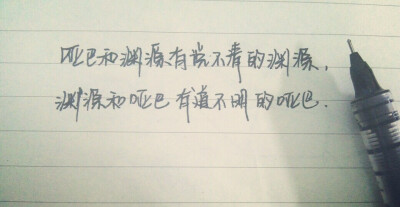 哑巴和渊源有说不清的渊源，
渊源和哑巴有道不明的哑巴.